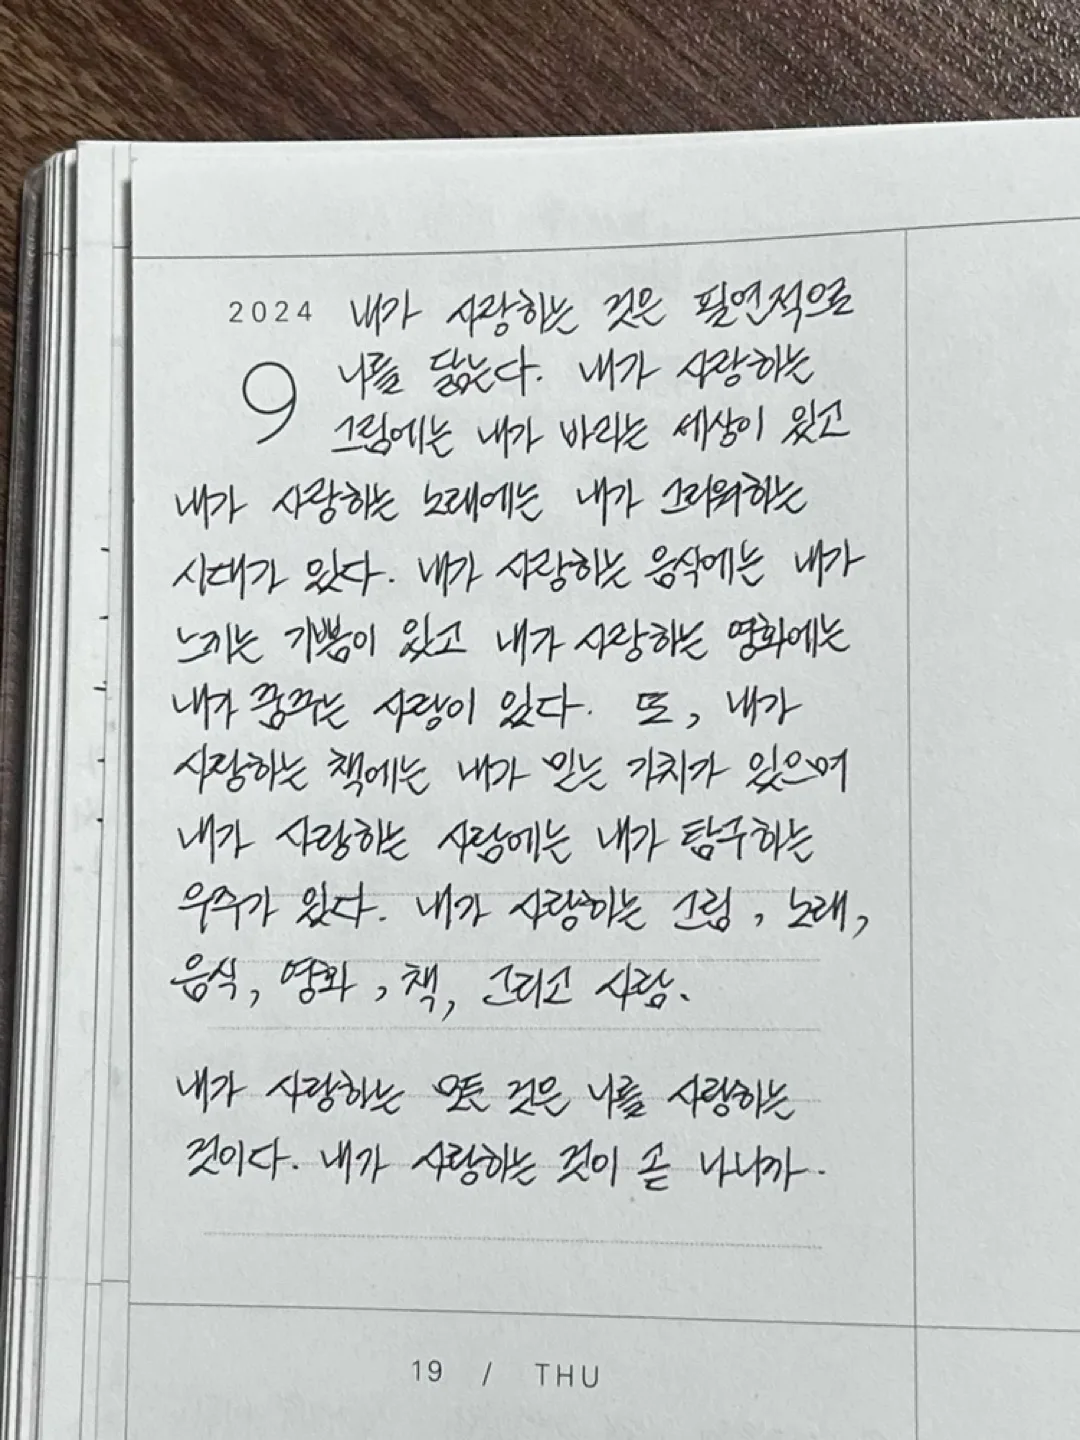 2024 내가 사랑하는 것은 필연적으로
9 나를 닮는다. 내가 사랑하는
그림에는 내가 바라는 세상이 있고
내가 사랑하는 노래에는 내가 그리워하는
시대가 있다. 내가 사랑하는 음식에는 내가
느끼는 기쁨이 있고 내가 사랑하는 영화에는
내가 꿈꾸는 사랑이 있다. 또, 내가
사랑하는 책에는 내가 믿는 가치가 있으며
내가 사랑하는 사람에는 내가 탐구하는
우주가 있다. 내가 사랑하는 그림, 노래,
음식, 영화, 책, 그리고 사람.
내가 사랑하는 모든 것은 나를 사랑하는
것이다. 내가 사랑하는 것이 곧 나니까.
19 / THU